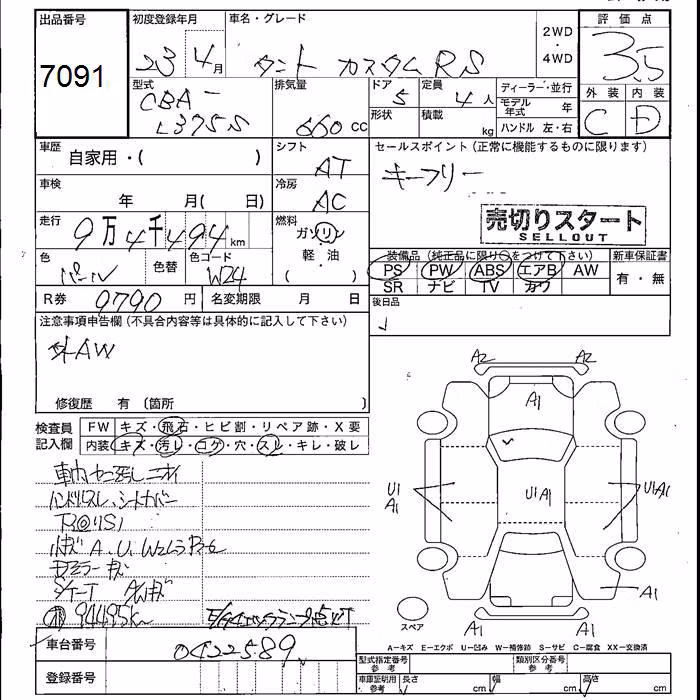 出品番号 初度登録年月 車名・グレード 2WD ・ 4WD 評価点
7091 23 4月 タント カスタムRS 3.5
型式 排気量 ドア 定員 ディーラー・並行 外装 内装
CBA-L375S 660 cc 5 4人 モデル年式 年 C D
形状 積載 kg ハンドル 左・右
車歴 自家用・( ) シフト AT セールスポイント(正常に機能するものに限ります)
車検 年 月( 日) 冷房 AC キーフリー
走行 9万4千494km 燃料 ガソリン 売切りスタート
軽・油 SELLOUT
色 パール 色替 色コード W24 ( ) 装備品(純正品に限り○をつけて下さい) 新車保証書
PS PW ABS エアB AW 有・無
SR ナビ TV カワ
R券 9790円 名変期限 月 日 後日品
注意事項申告欄(不具合内容等は具体的に記入して下さい)
社外AW
修復歴 有 〔箇所 〕
検査員記入欄 FW キズ・飛石・ヒビ割・リペア跡・X要
内装 キズ・汚レ・コゲ・穴・スレ・キレ・破レ
A2 A2
A1
U1 A1 U1A1 U1A1
A1
A1 A1
ハンドルスレ、シートカバー
94495km
スペア
A-キズ E-エクボ U-凹み W-補修跡 S-サビ C-腐食 XX-交換済
車台番号 0422589
登録番号
型式指定番号 参考 類別区分番号 参考
車庫証明用 参考 長さ cm 幅 cm 高さ cm